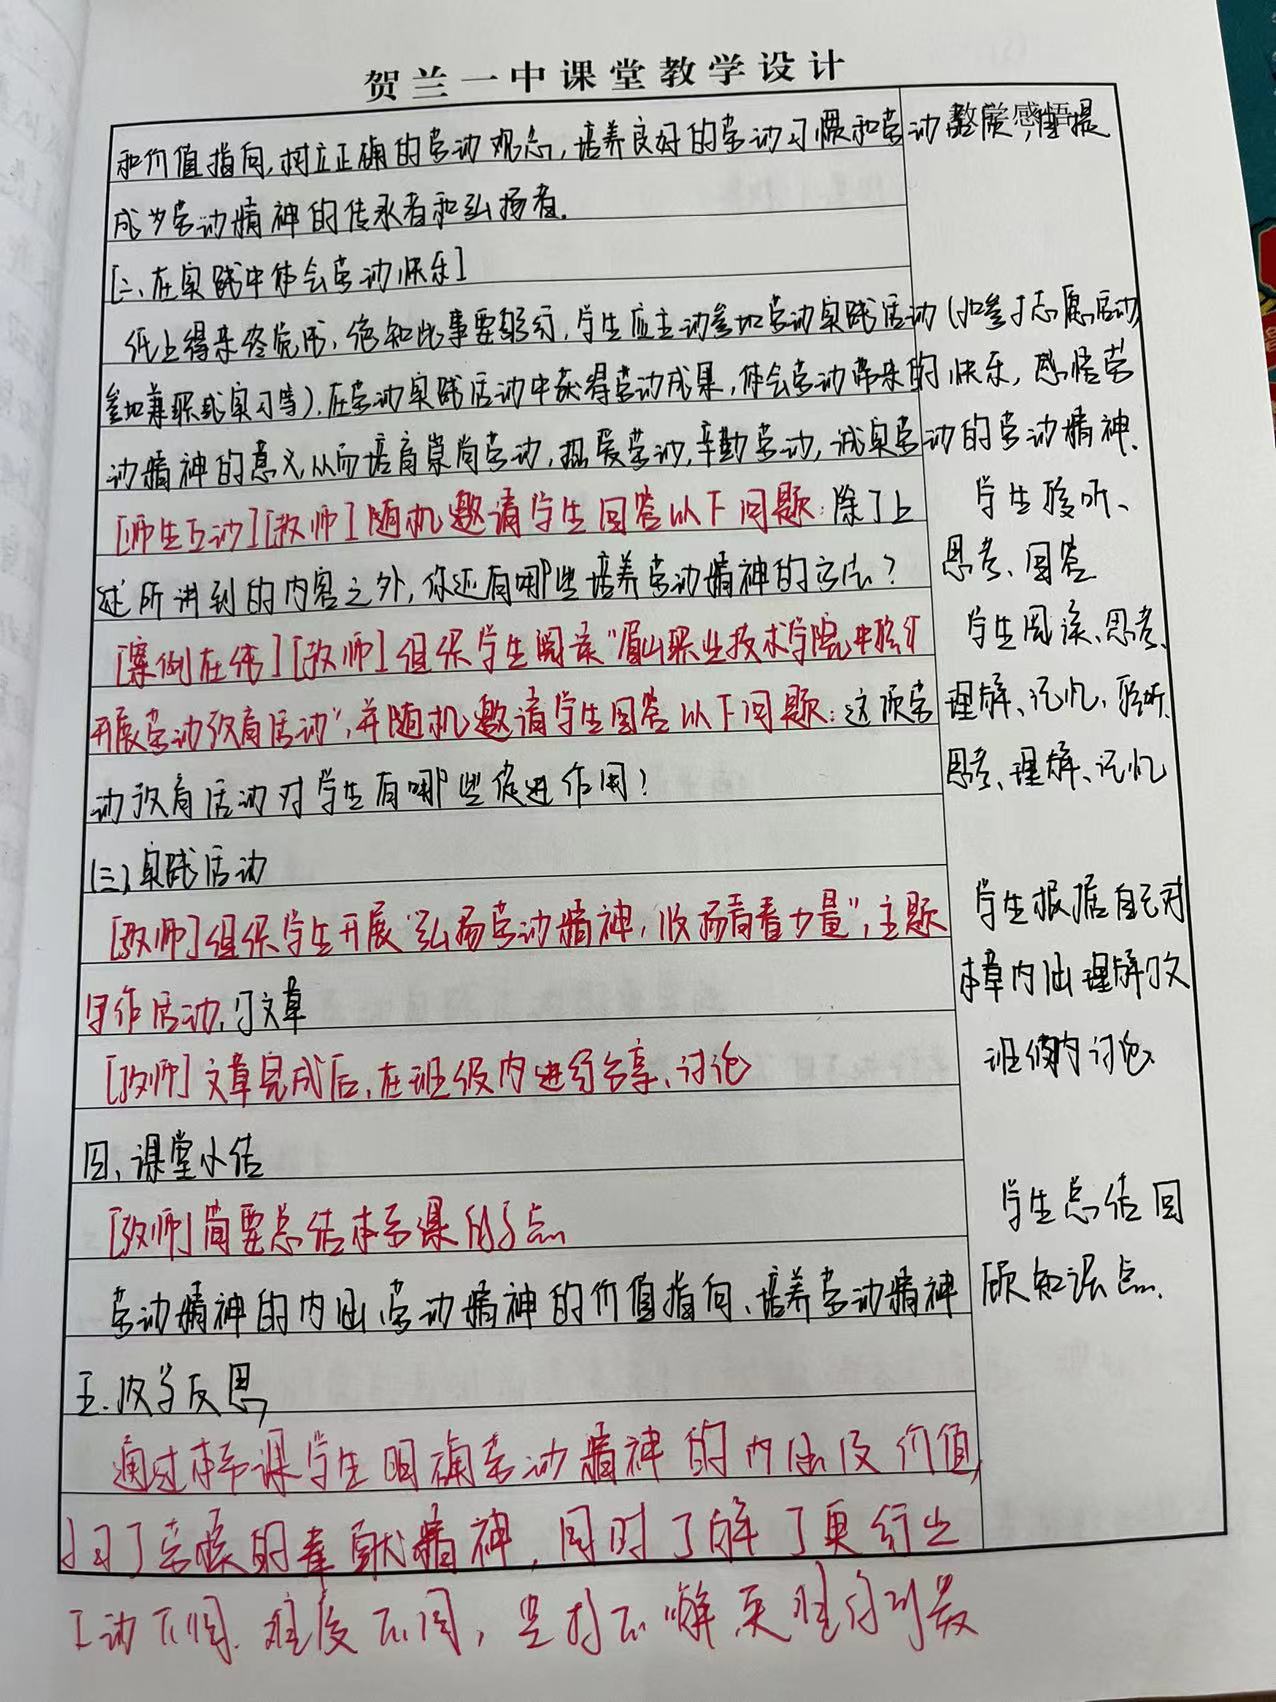 贺兰一中课堂教学设计
教学感悟
和价值指向,树立正确的劳动观念,培养良好的劳动习惯和劳动
成为劳动精神的传承者和弘扬者.
[二、在实践中体会劳动快乐]
纸上得来终觉浅,绝知此事要躬行,学生应主动参加劳动实践活动(如参与志愿活动,
参加兼职或实习等),在劳动实践活动中获得劳动成果,体会劳动带来的快乐,感悟劳
动精神的意义,从而培育崇尚劳动,热爱劳动,辛勤劳动,诚实劳动的劳动精神.
[师生互动][教师]随机邀请学生回答以下问题:除了上
述所讲到的内容之外,你还有哪些培养劳动精神的方法?
学生聆听、
思考、回答
[案例在线][教师]组织学生阅读"眉山职业技术学院
开展劳动教育活动",并随机邀请学生回答以下问题:这项劳
动教育活动对学生有哪些促进作用?
学生阅读、思考、
理解、记忆、聆听、
思考、理解、记忆
(三)实践活动
[教师]组织学生开展"弘扬劳动精神,青春力量",主题
写作活动,写文章
[教师]文章完成后,在班级内进行分享、讨论
学生根据自己对
本章内涵理解
班级内讨论
四、课堂小结
[教师]简要总结本节课的
劳动精神的内涵、劳动精神的价值指向、培养劳动精神
学生总结回
顾知识点.
五.教学反思
通过本节课学生明确劳动精神的内涵及价值,
的奉献精神,同时了解了
不同,难度不同,